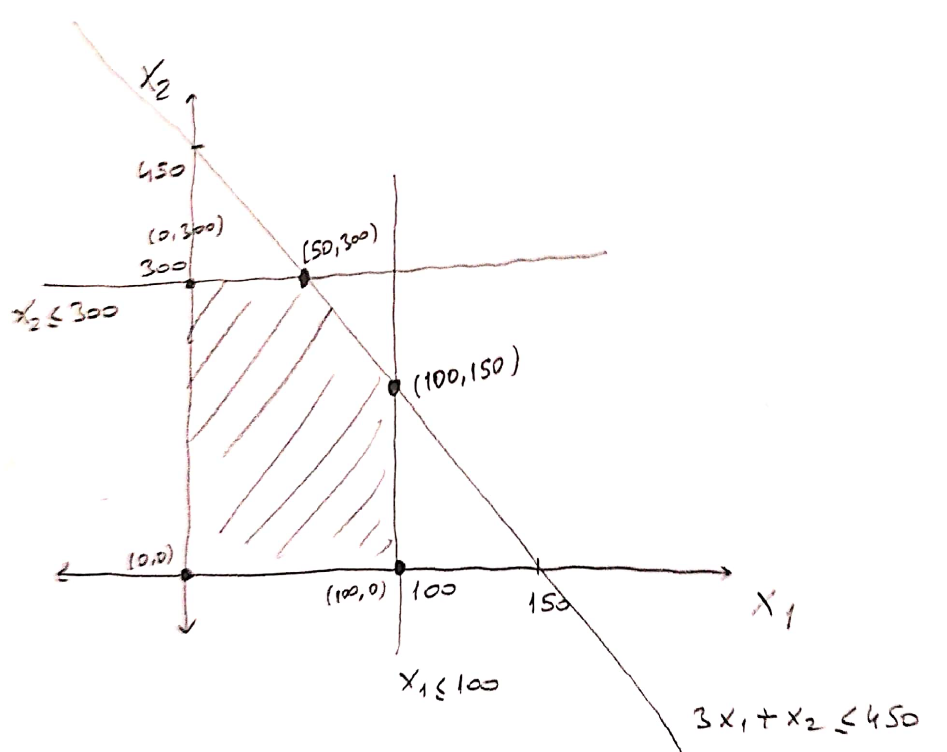 X₂
450
(0,300)
(50,300)
300
x₂ ≤ 300
(100,150)
(0,0)
(100,0)
100
150
X₁
X₁ ≤ 100
3x₁ + x₂ ≤ 450